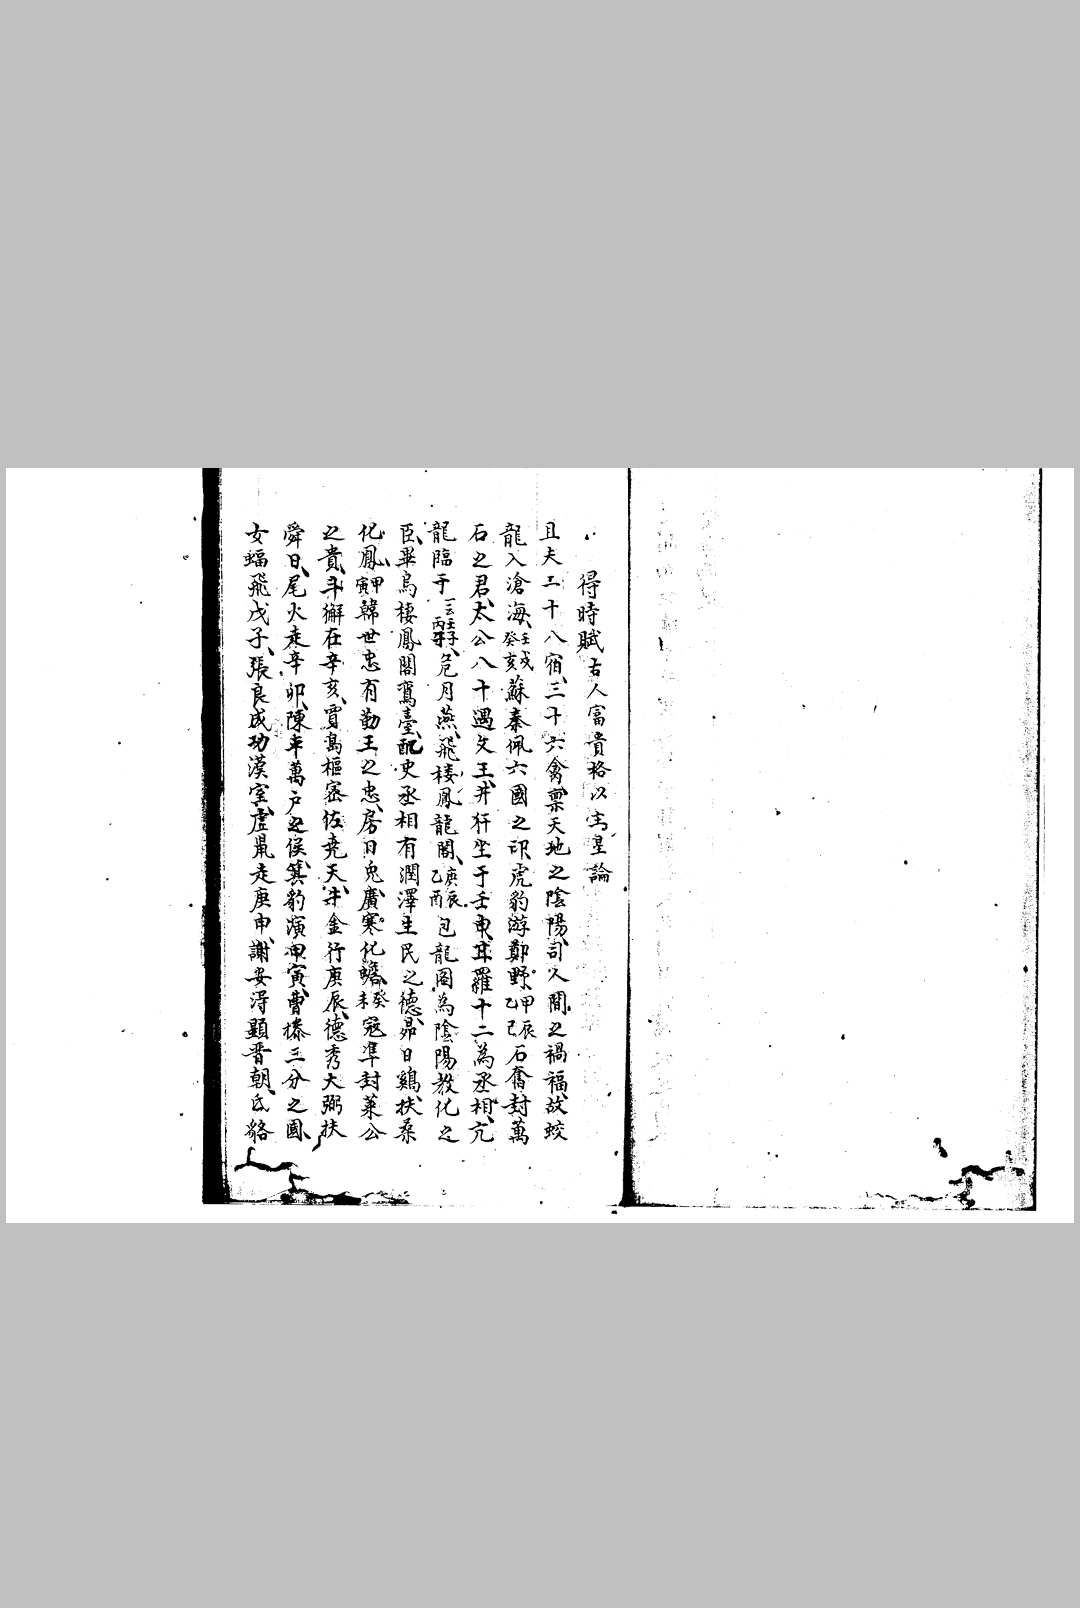 得時賦古人富貴格以宝星論
且夫二十八宿三十六禽稟天地之陰陽司人間之禍福故蛟
龍入滄海壬戌癸亥蘇秦佩六國之印虎豹游鄭野甲辰乙巳石奮封萬
石之君太公八十遇文王井犴坐于壬申甘羅十二為丞相亢
龍臨于一云壬子丙子危月燕飛棲鳳龍閣庚辰乙酉包龍圖為陰陽教化之
臣畢烏棲鳳閣鸞臺配史丞相有潤澤生民之德昴日鷄扶桑
化鳳甲寅韓世忠有勤王之忠房日兔廣寒化蟾癸未寇準封萊公
之貴斗獬在辛亥賈島樞密佐堯天牛金行庚辰德秀大弼扶
舜日尾火走辛卯陳平萬户之侯箕豹演甲寅曹操三分之國
女蝠飛戊子張良成功漢室虛鼠走庚申謝安得顯晋朝氐貉